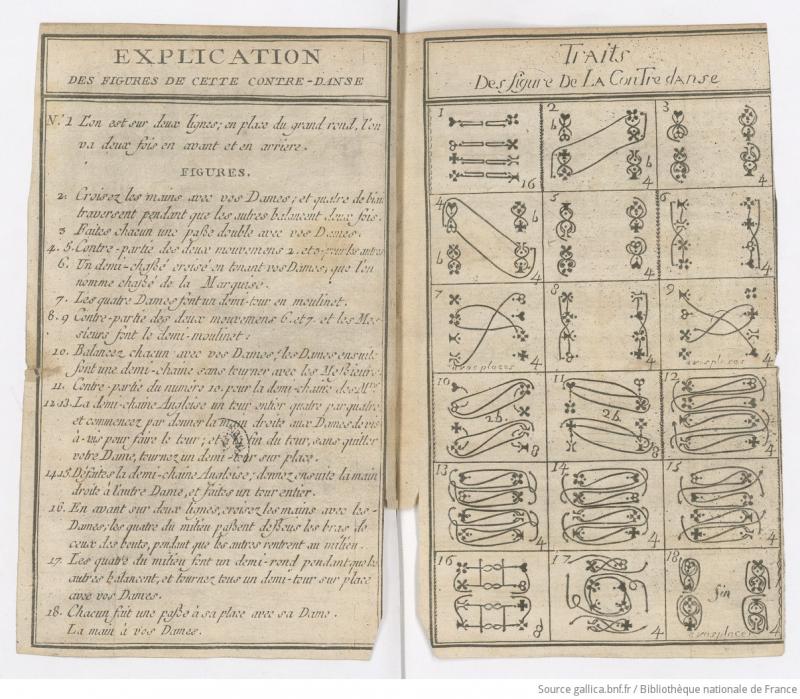 EXPLICATION
DES FIGURES DE CETTE CONTRE-DANSE
N.º 1 L'on est sur deux lignes; en place du grand rond, l'on
va deux fois en avant et en arriere.
FIGURES.
2. Croisez les mains avec vos Dames; et quatre de biais
traversent pendant que les autres balancent deux fois.
3 Faites chacun une paße double avec vos Dames.
4. 5. Contre-partie des deux mouvemens 2. et 3. pour les autres
6. Un demi-chaßé croisé en tenant vos Dames, que l'on
nomme chaßé de la Marquise.
7. Les quatre Dames font un demi-tour en moulinet.
8. 9 Contre-partie des deux mouvemens 6. et 7. et les Mes-
sieurs font le demi-moulinet:
10. Balancez chacun avec vos Dames; les Dames ensuite
font une demi-chaine sans tourner avec les Meßieurs.
11. Contre-partie du numéro 10. pour la demi-chaine des Mrs
12 13. La demi-chaine Angloise un tour entier quatre par quatre,
et commencez par donner la main droite aux Dames de vis
à-vis pour faire le tour; et fin du tour, sans quitter
votre Dame, tournez un demi-tour sur place.
14. 15. Défaites la demi-chaine Angloise; donnez ensuite la main
droite à l'autre Dame, et faites un tour entier.
16. En avant sur deux lignes, croisez les mains avec les
Dames; les quatre du milieu paßent deßous les bras de
ceux des bouts, pendant que les autres rentrent au milieu.
17. Les quatre du milieu font un demi-rond pendant que les
autres balancent; et tournez tous un demi-tour sur place
avec vos Dames.
18. Chacun fait une paße à sa place avec sa Dame.
La main à vos Dames.
Traits
Des figure De LA ConTre danse
1 16
2 b b 4
3 4
4 b b 4
5 4
6 4
7 a vos places 4
8 4
9 a vos places 4
10 2b. 8
11 2b.
12 4
13 4
14 4
15 4
16 8
17 4
18 fin a vos places 4
Source gallica.bnf.fr / Bibliothèque nationale de France